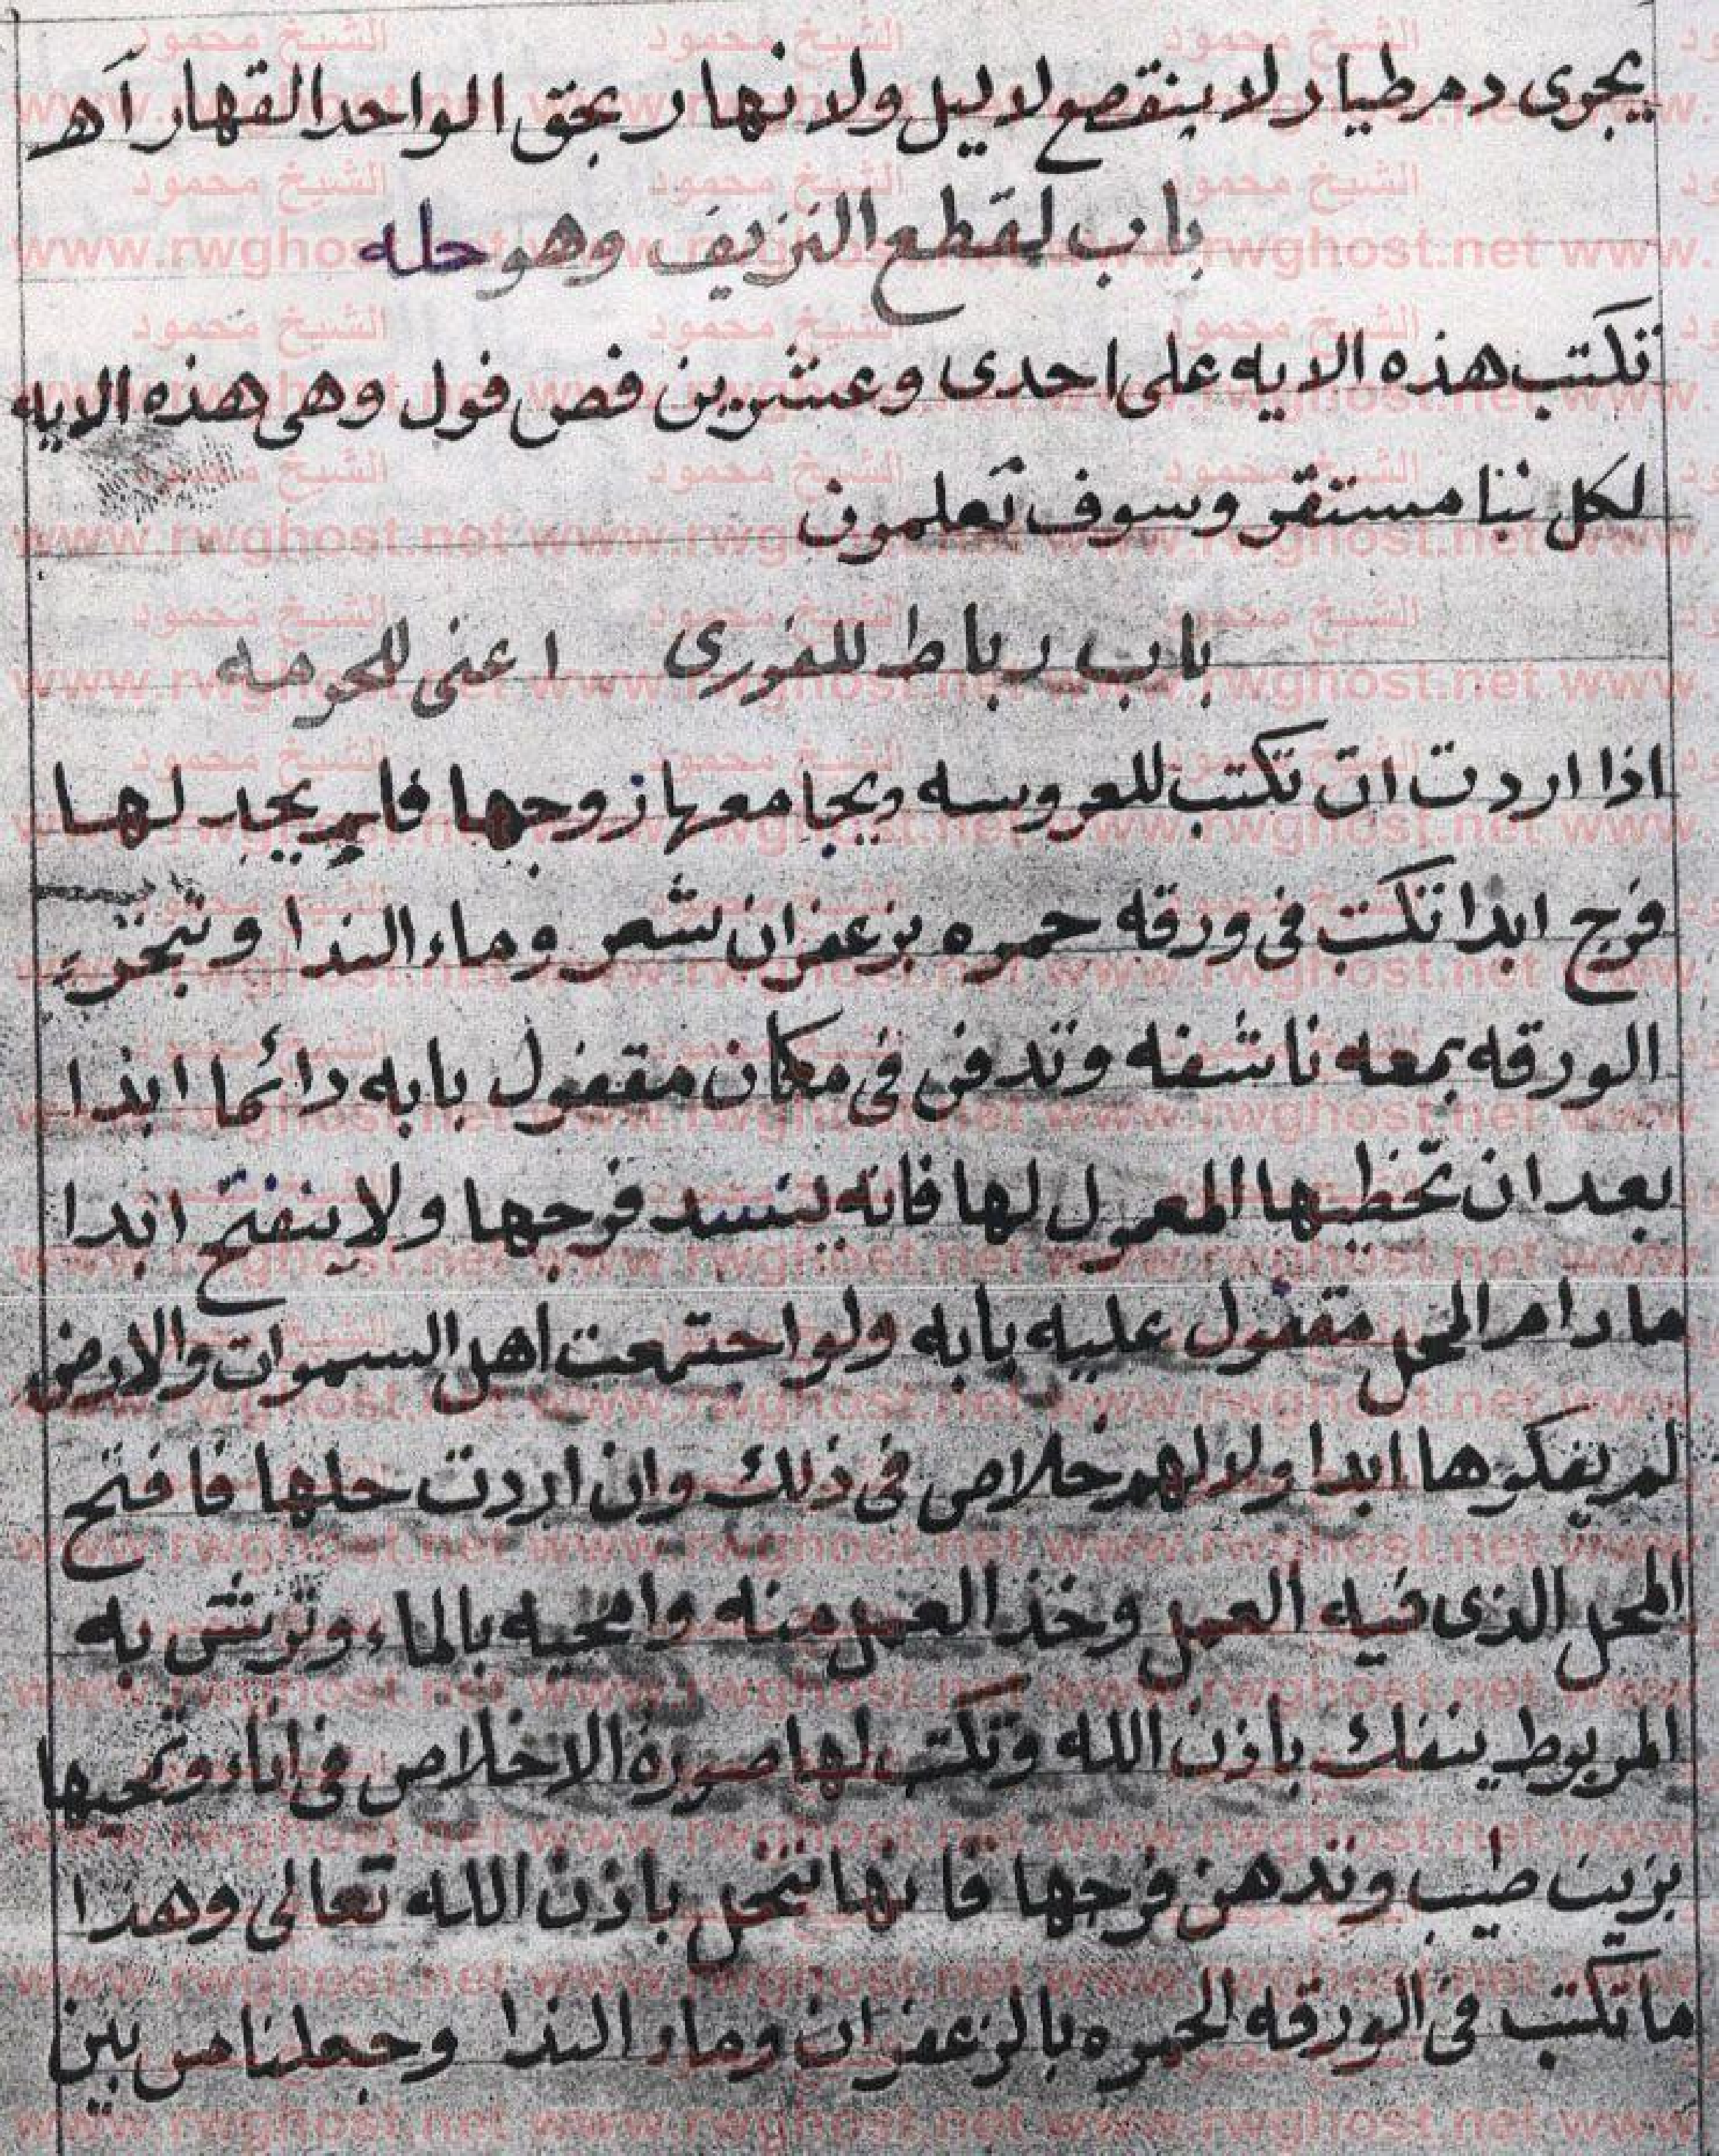 يجرى دم طيار لا ينقصع لا ليل ولا نهار بحق الواحد القهار اه
باب لقطع النزيف وهو حله
تكتب هذه الايه على احدى وعشرين فص فول وهى هذه الايه
لكل نبا مستقر وسوف تعلمون
باب رباط للفورى اعنى للحومه
اذا اردت ان تكتب للعروسه ويجامعها زوجها فلم يجد لها
فرج ابدا تكتب فى ورقه حمره بزعفران شعر وماء الندا وتبخر
الورقه بمعه ناشفه وتدفن فى مكان مقفول بابه دائما ابدا
بعد ان تخطيها المعمول لها فانه ينسد فرجها ولا ينفتح ابدا
ما دام المحل مقفول عليه بابه ولو اجتمعت اهل السموات والارض
لم يفكوها ابدا ولا لهم خلاص فى ذلك وان اردت حلها فافتح
المحل الذى فيه العمل وخذ العمل منه وامحيه بالماء وترش به
المربوط ينفك باذن الله وتكتب لها صورة الاخلاص فى اناء وتمحيها
بزيت طيب وتدهن فرجها فانها تنحل باذن الله تعالى وهذا
ما تكتب فى الورقه الحمره بالزعفران وماء الندا وجعلنا من بين
الشيخ محمود
www.rwghost.net